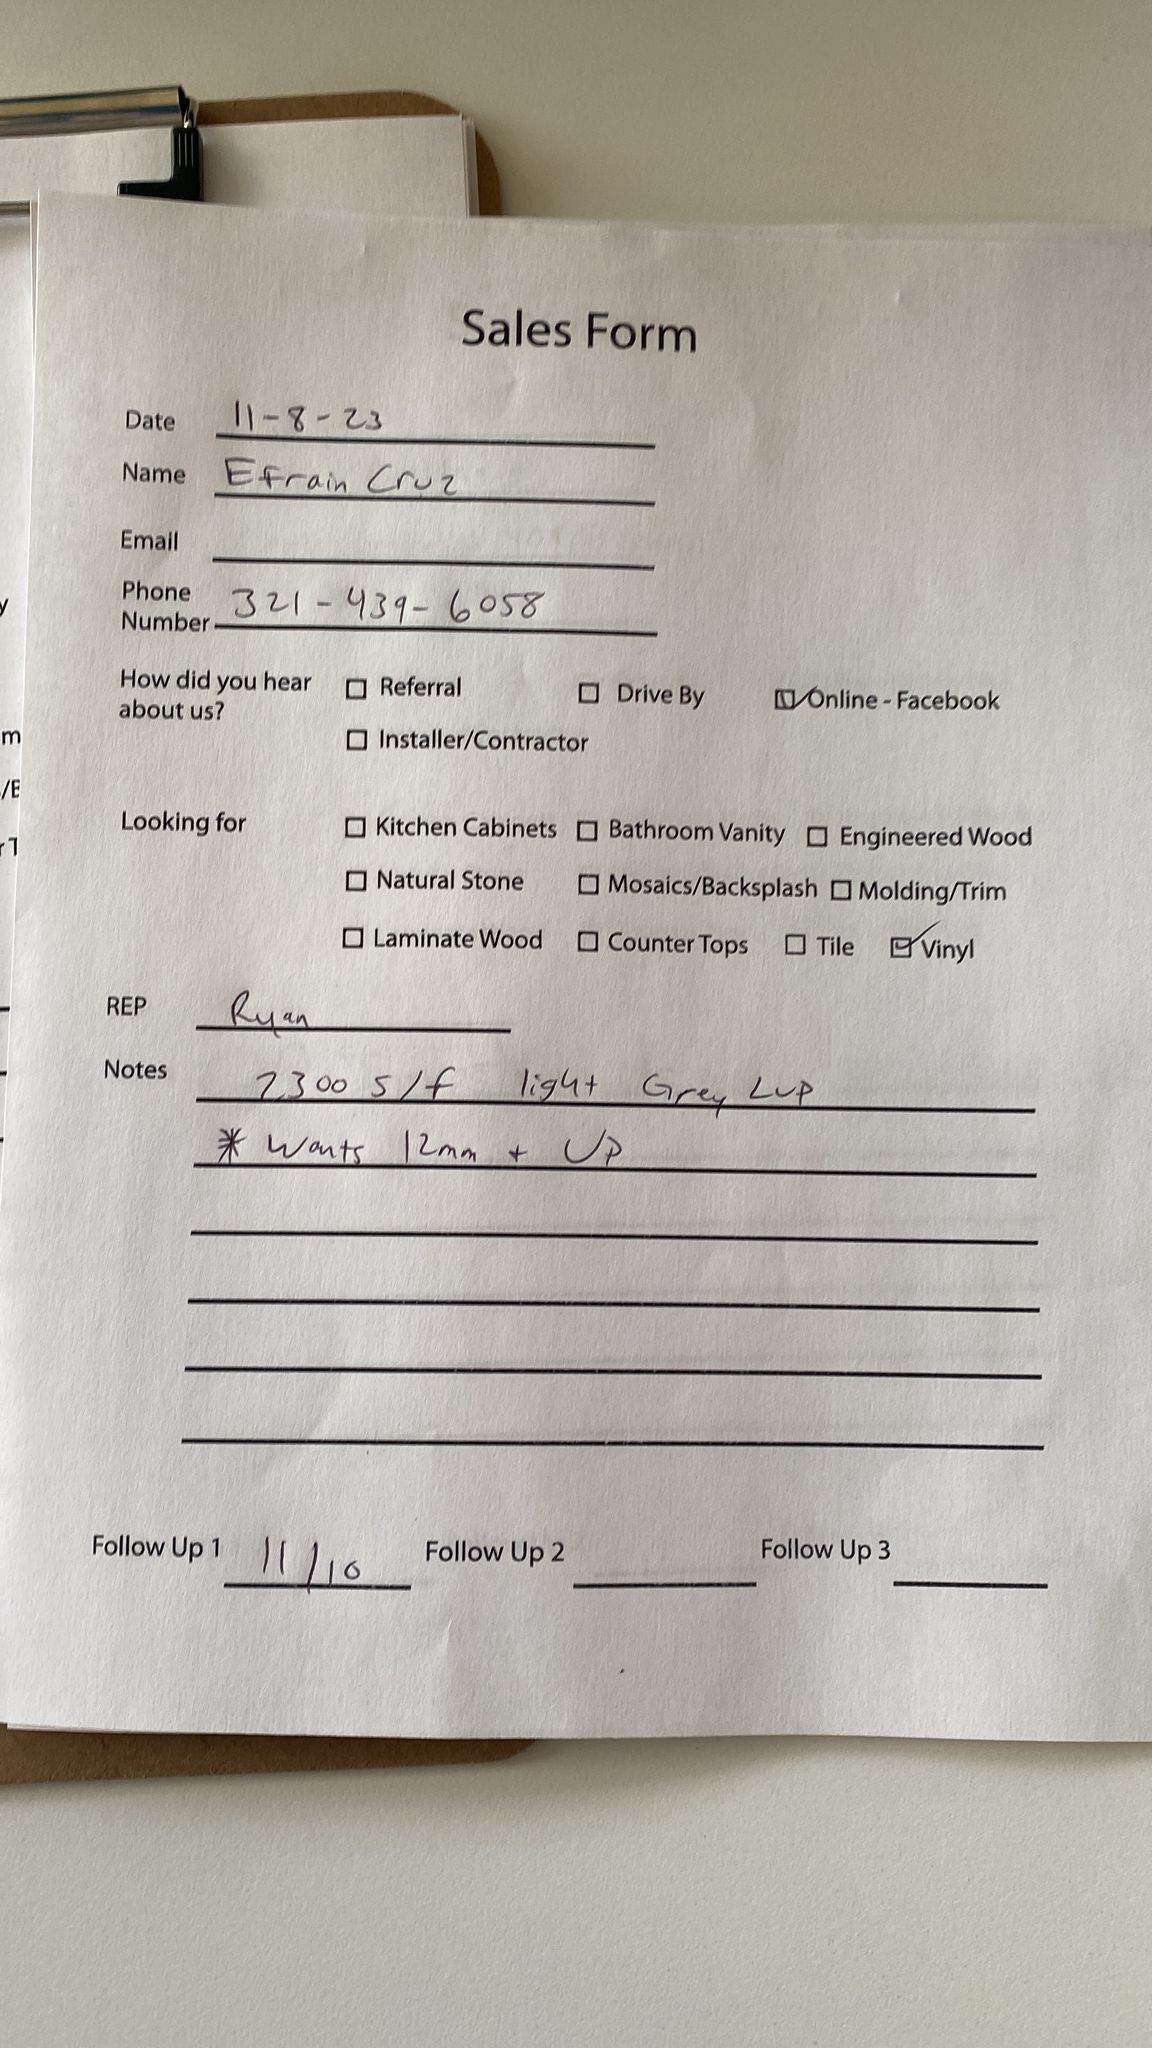 Sales Form
Date 11-8-23
Name Efrain Cruz
Email
Phone Number 321-439-6058
How did you hear about us?
☐ Referral ☐ Drive By ☑ Online - Facebook
☐ Installer/Contractor
Looking for
☐ Kitchen Cabinets ☐ Bathroom Vanity ☐ Engineered Wood
☐ Natural Stone ☐ Mosaics/Backsplash ☐ Molding/Trim
☐ Laminate Wood ☐ Counter Tops ☐ Tile ☑ Vinyl
REP Ryan
Notes s/f light Grey LVP
* Wants 12mm + UP
Follow Up 1 11/10 Follow Up 2 Follow Up 3